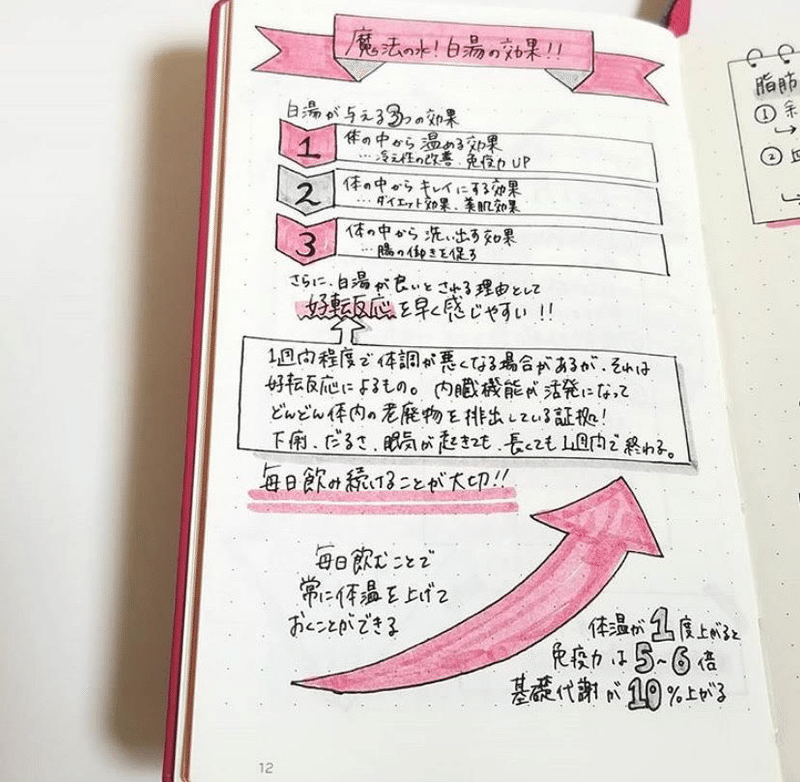 魔法の水!白湯の効果!!
白湯が与える3つの効果
1 体の中から温める効果
…冷え性の改善、免疫力UP
2 体の中からキレイにする効果
…ダイエット効果、美肌効果
3 体の中から洗い出す効果
…腸の働きを促す
さらに、白湯が良いとされる理由として
好転反応を早く感じやすい!!
1週間程度で体調が悪くなる場合があるが、それは
好転反応によるもの。内臓機能が活発になって
どんどん体内の老廃物を排出している証拠!
下痢、だるさ、眠気が起きても、長くても1週間で終わる。
毎日飲み続けることが大切!!
毎日飲むことで
常に体温を上げて
おくことができる
体温が1度上がると
免疫力は5~6倍
基礎代謝が10%上がる
12
脂肪
①
②